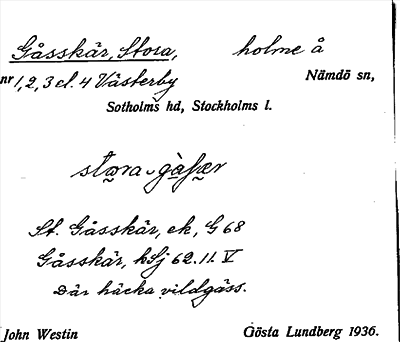 Gåsskär, Stora, holme å
nr 1, 2, 3 el. 4 Västerby Nämdö sn,
Sotholms hd, Stockholms l.
St. Gåsskär, ek, G 68
Gåsskär, hSj 62.11. V
Där häcka vildgäss.
John Westin Gösta Lundberg 1936.